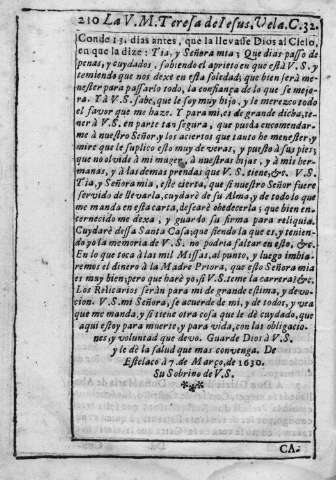 210 La V. M. Teresa de Iesus, Vela. C. 32.
Conde 15. dias antes, que la llevasse Dios al Cielo,
en que la dize: Tia, y Señora mia: Que dias passo de
penas, y cuydados, sabiendo el aprieto en que està V. S. y
temiendo que nos dexe en esta soledad; que bien serà me-
nester para passarlo todo, la confiança de lo que se mejo-
ra. Yà V. S. sabe, que le soy muy hijo, y le merezco todo
el favor que me haze. Y para mi, es de grande dicha, te-
ner à V. S. en parte tan segura, que pueda encomendar-
me à nuestro Señor, y los aciertos que tanto he menester, y
mire que le suplico esto muy de veras, y puesto à sus pies;
que no olvide à mi muger, à nuestras hijas, y à mis her-
manas, y à las demas prendas que V. S. tiene, &c. V. S.
Tia, y Señora mia, este cierta, que si nuestro Señor fuere
servido de llevarla, cuydarè de su Alma, y de todo lo que
me manda en esta carta, desearè obedecerla; que bien en-
ternecido me dexa, y guardo su firma para reliquia.
Cuydarè dessa Santa Casa; que siendo la que es, y tenien-
do yo la memoria de V. S. no podria faltar en esto, &c.
En lo que toca à las mil Missas, al punto, y luego imbia-
remos el dinero à la Madre Priora, que esto Señora mia
es muy bien; pero que harè yo, si V. S. teme la carrera? &c.
Los Relicarios seràn para mi de grande estima, y devo-
cion. V. S. mi Señora, se acuerde de mi, y de todos, y vea
que me manda, y si tiene otra cosa que le dè cuydado, que
aqui estoy para muerte, y para vida, con las obligacio-
nes, y voluntad que devo. Guarde Dios à V. S.
y le dè la salud que mas convenga. De
à 7. de Março, de 1630.
Su Sobrino de V. S.
CA-